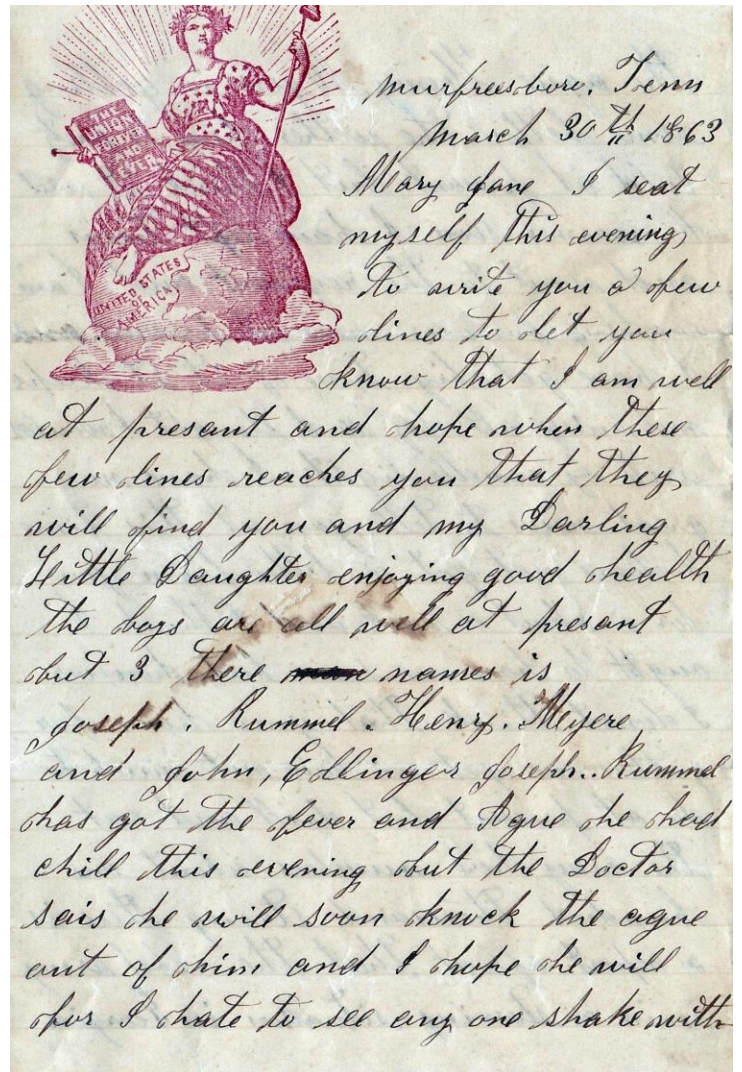 THE
UNION
FOREVER
AND
EVER
UNITED STATES
OF
AMERICA
Murfreesboro. Tenn
March 30th 1863
Mary Jane I seat
myself this evening
to write you a few
lines to let you
know that I am well
at presant and hope when these
few lines reaches you that they
will find you and my Darling
Little Daughter enjoying good health
the boys are all well at presant
but 3 there names is
Joseph. Rummel. Henry. Myere
and John, Edlinger Joseph.. Rummel
has got the fever and Ague he had
chill this evening but the Doctor
sais he will soon knock the ague
out of him and I hope he will
for I hate to see any one shake with